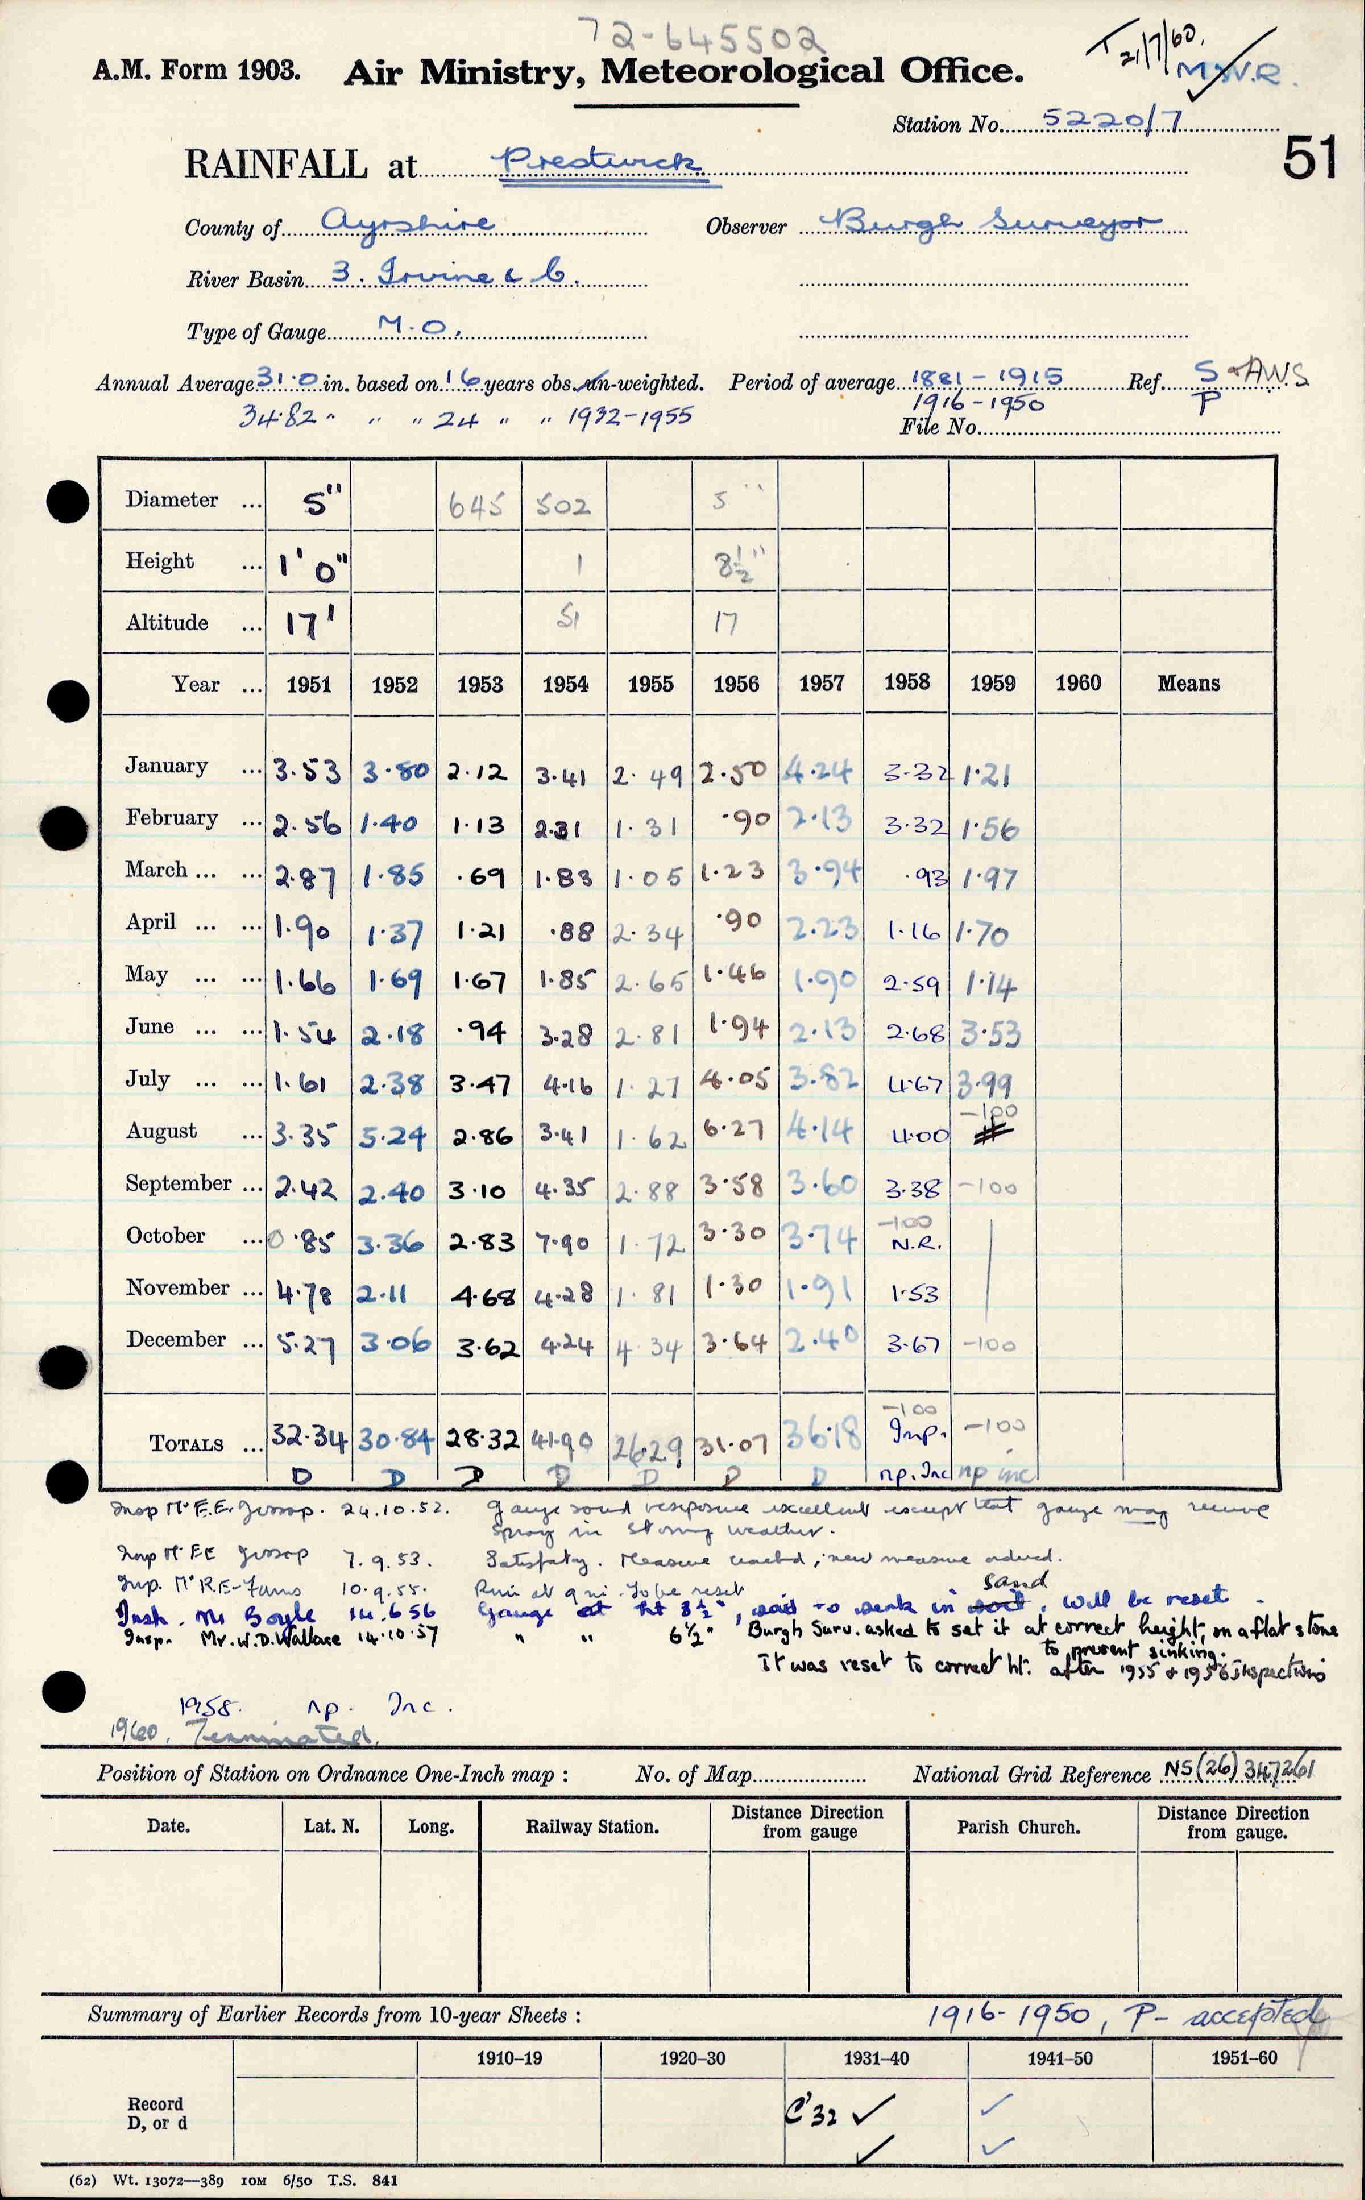 72-645502
T 21/7/60.
A.M. Form 1903. Air Ministry, Meteorological Office. M.W.R.
Station No. 5220/7
RAINFALL at Prestwick 51
County of Ayrshire Observer Burgh Surveyor
River Basin 3. Irvine & C.
Type of Gauge M.O.
Annual Average 31.0 in. based on 16 years obs. un-weighted. Period of average 1881-1915 Ref. S & AWS
34.82 " " " 24 " " 1932-1955 1916-1950 P
File No.
Diameter ... 5" 645 502 5"
Height ... 1' 0" 1 8½"
Altitude ... 17' 51 17
Year ... 1951 1952 1953 1954 1955 1956 1957 1958 1959 1960 Means
January ... 3.53 3.80 2.12 3.41 2.49 2.50 4.24 3.32 1.21
February ... 2.56 1.40 1.13 2.31 1.31 .90 2.13 3.32 1.56
March ... ... 2.87 1.85 .69 1.83 1.05 1.23 3.94 .93 1.97
April ... ... 1.90 1.37 1.21 .88 2.34 .90 2.23 1.16 1.70
May ... ... 1.66 1.69 1.67 1.85 2.65 1.46 1.90 2.59 1.14
June ... ... 1.54 2.18 .94 3.28 2.81 1.94 2.13 2.68 3.53
July ... ... 1.61 2.38 3.47 4.16 1.27 4.05 3.82 4.67 3.99
August ... 3.35 5.24 2.86 3.41 1.62 6.27 4.14 4.00 -100
September ... 2.42 2.40 3.10 4.35 2.88 3.58 3.60 3.38 -100
October ... 0.85 3.36 2.83 7.90 1.72 3.30 3.74 -100 N.R.
November ... 4.78 2.11 4.68 4.28 1.81 1.30 1.91 1.53
December ... 5.27 3.06 3.62 4.24 4.34 3.64 2.40 3.67 -100
TOTALS ... 32.34 30.84 28.32 41.90 26.29 31.07 36.18 -100 Inp. -100
D D D D D D D np. Inc np inc
Insp Mr E.E. Jessop. 24.10.52. Gauge sound exposure excellent except that gauge may receive
spray in stormy weather.
Insp Mr EE Jessop 7.9.53. Satisfacty. Measure cracked, new measure ordered.
Insp. Mr R.E. 10.9.55. Rim at 9 ins. To be reset
Insp. Mr Boyle 14.6.56 Gauge at ht 8½", said to sink in sand, will be reset.
Insp. Mr. W.D. Wallace 14.10.57 " " 6½" Burgh Surv. asked to set it at correct height, on a flat stone
to prevent sinking.
It was reset to correct ht. after 1955 & 1956 inspections
1958. np. Inc.
1960. Terminated.
Position of Station on Ordnance One-Inch map : No. of Map National Grid Reference NS(26) 347261
Date. Lat. N. Long. Railway Station. Distance Direction from gauge Parish Church. Distance Direction from gauge.
Summary of Earlier Records from 10-year Sheets : 1916-1950, P- accepted
1910–19 1920–30 1931–40 1941–50 1951–60
Record
D, or d C'32 ✓ ✓
✓ ✓
(62) Wt. 13072—389 10M 6/50 T.S. 841